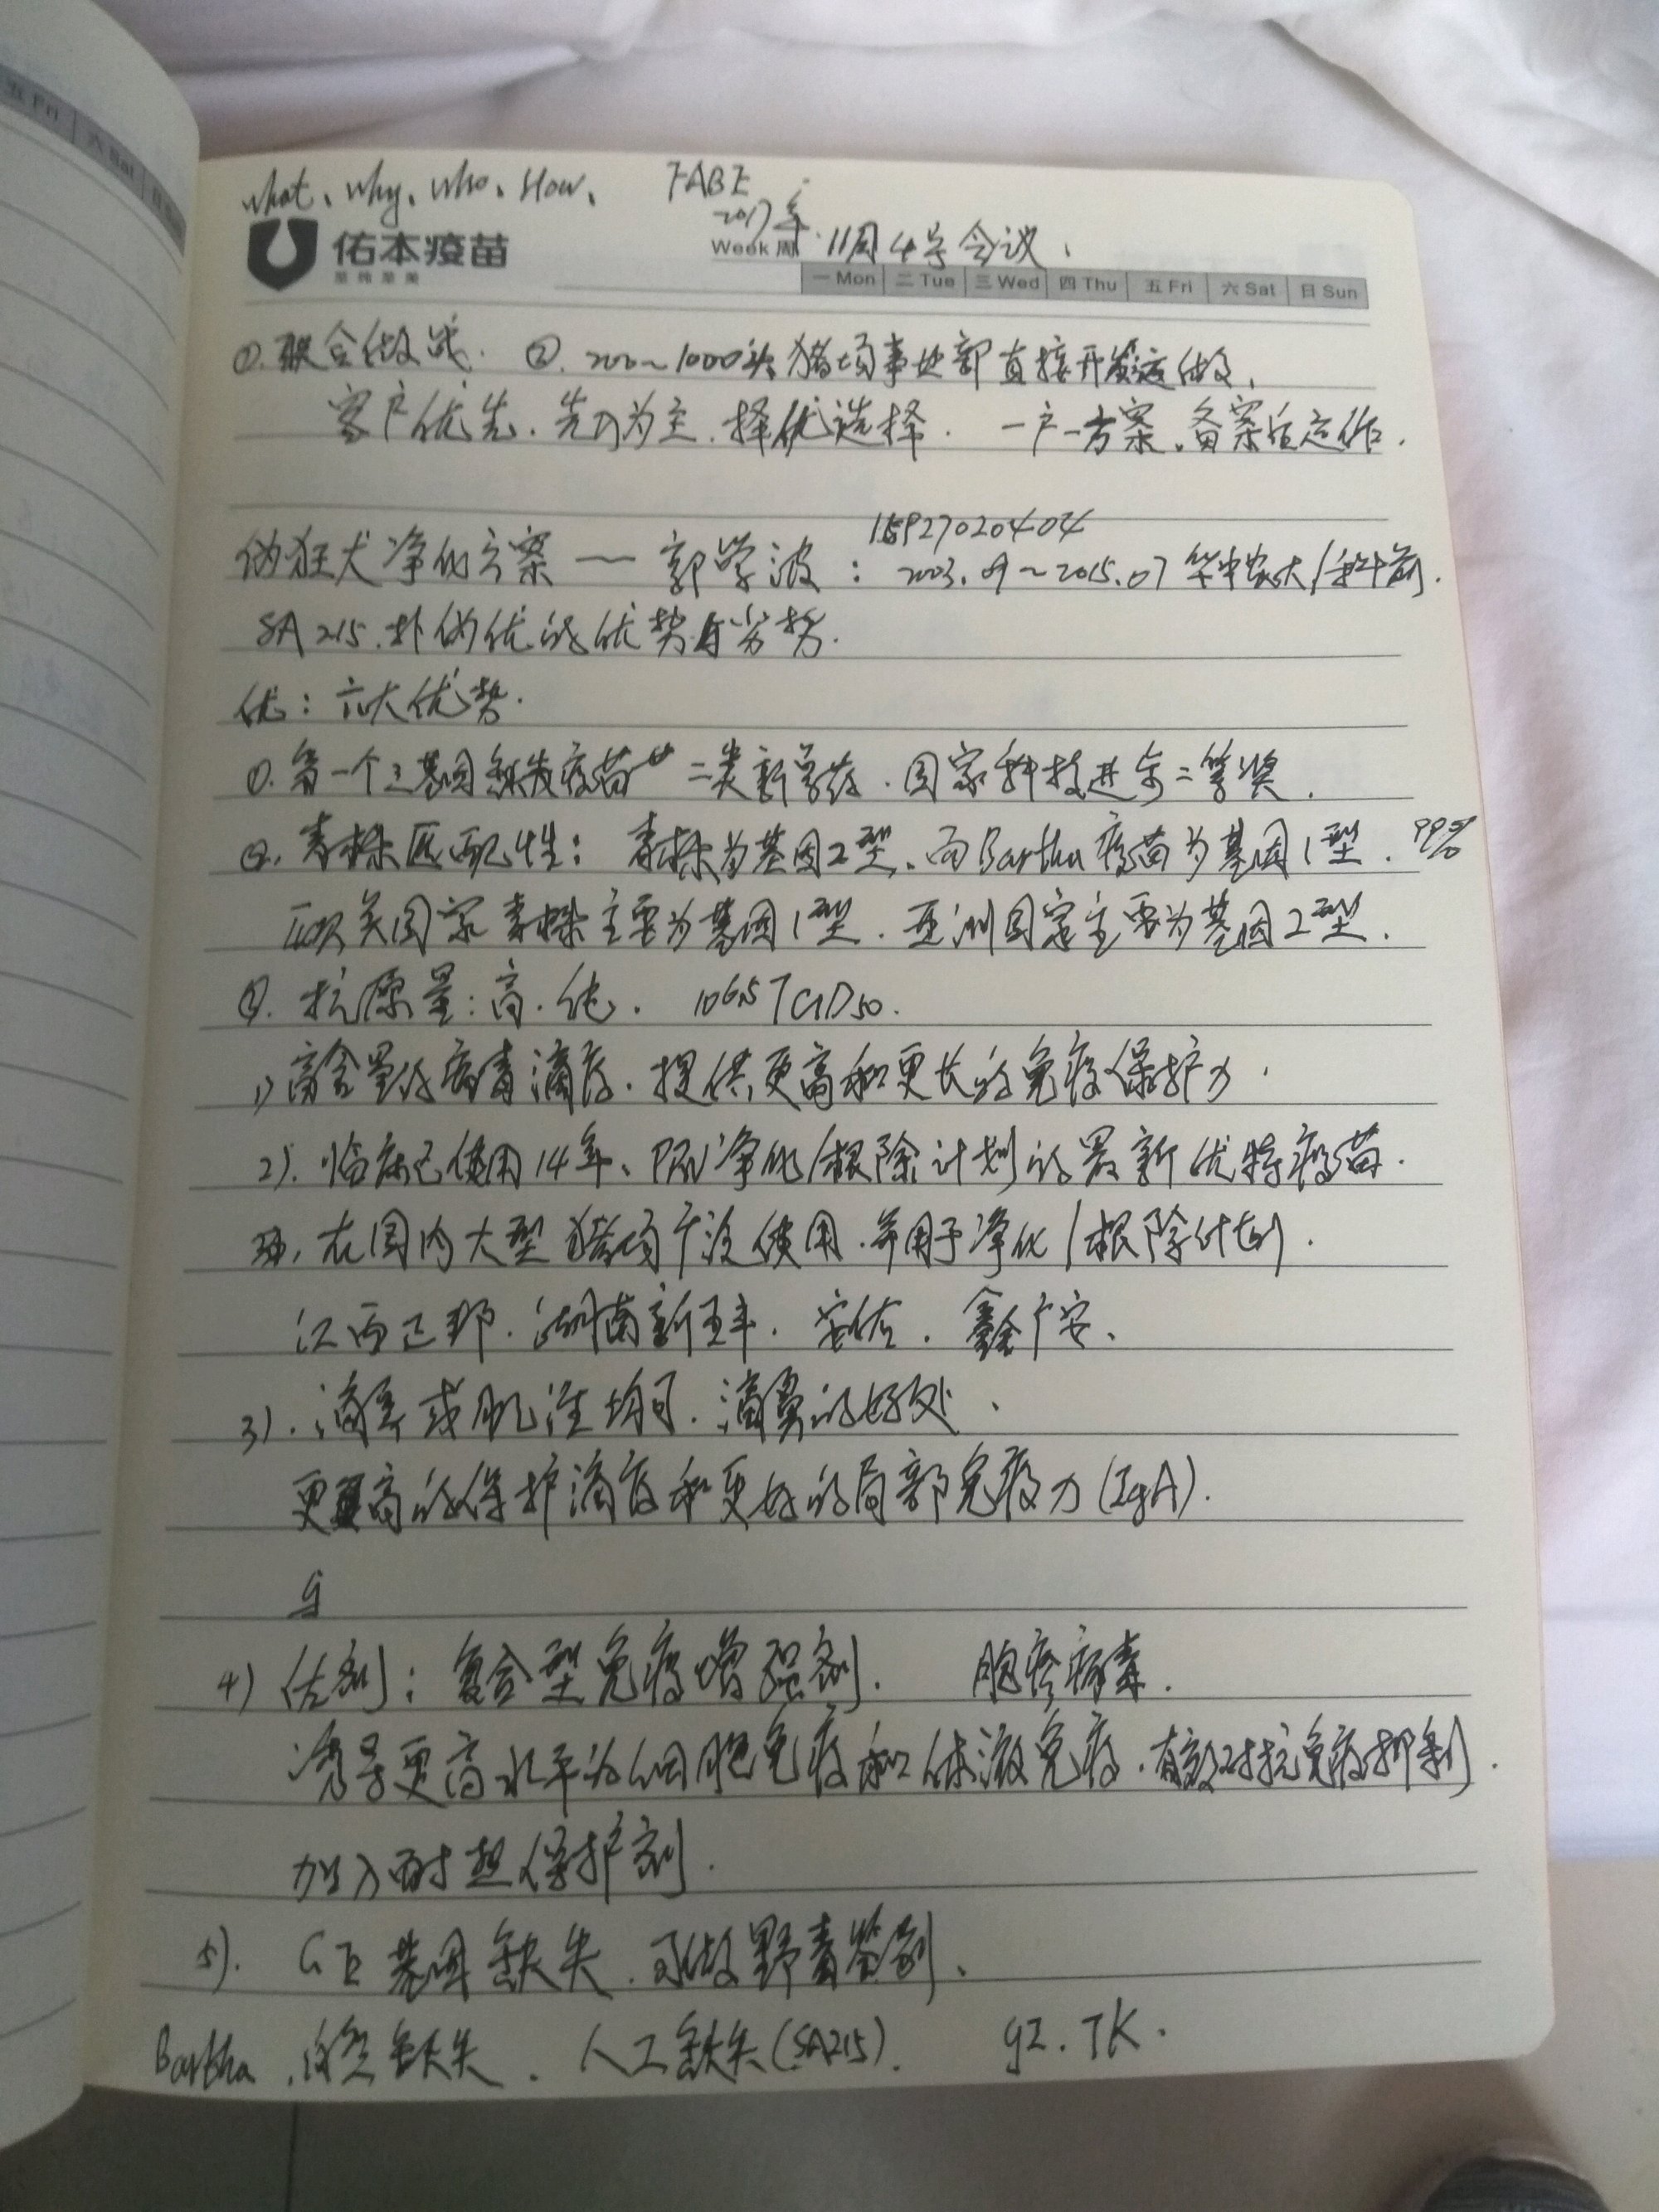 五 Fri 六 Sat
what、why、who、How、 FABE
2017年
佑本疫苗
Week 周 11周4号会议、
一 Mon 二 Tue 三 Wed 四 Thu 五 Fri 六 Sat 日 Sun
①.联合做战. ②. 200~1000头猪场事业部直接开发运做,
客户优先.先入为主.择优选择. 一户一方案、备案后运作.
15927020404
伪狂犬净化方案 — 郭学波: 2003.09~2015.07 华中农大/科前.
SA215.扑伪优的优势与劣势.
优:六大优势.
①.第一个三基因缺失疫苗 二类新兽药.国家科技进步二等奖.
②.毒株匹配性: 毒株为基因2型、而Bartha疫苗为基因1型. 99%
欧美国家毒株主要为基因1型.亚洲国家主要为基因2型.
③.抗原量:高.纯. TCID50.
1)高含量的病毒滴度.提供更高和更长的免疫保护力.
2).临床已使用14年、PRV净化/根除计划的最新优特疫苗.
在国内大型猪场广泛使用.并用于净化/根除计划.
江西正邦.湖南新五丰.安佑.鑫广安、
3).滴鼻或肌注均可.滴鼻的好处、
更高的保护滴度和更好的局部免疫力(IgA).
4)佐剂:复合型免疫增强剂. 疱疹病毒.
诱导更高水平的细胞免疫和体液免疫.有效对抗免疫抑制.
加入耐热保护剂.
5). GE基因缺失.可做野毒鉴别、
Bartha.自然缺失. 人工缺失(SA215). gI.TK.